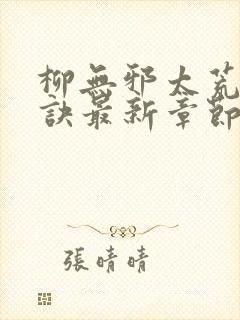 柳無邪太荒
訣最新章節
張晴晴